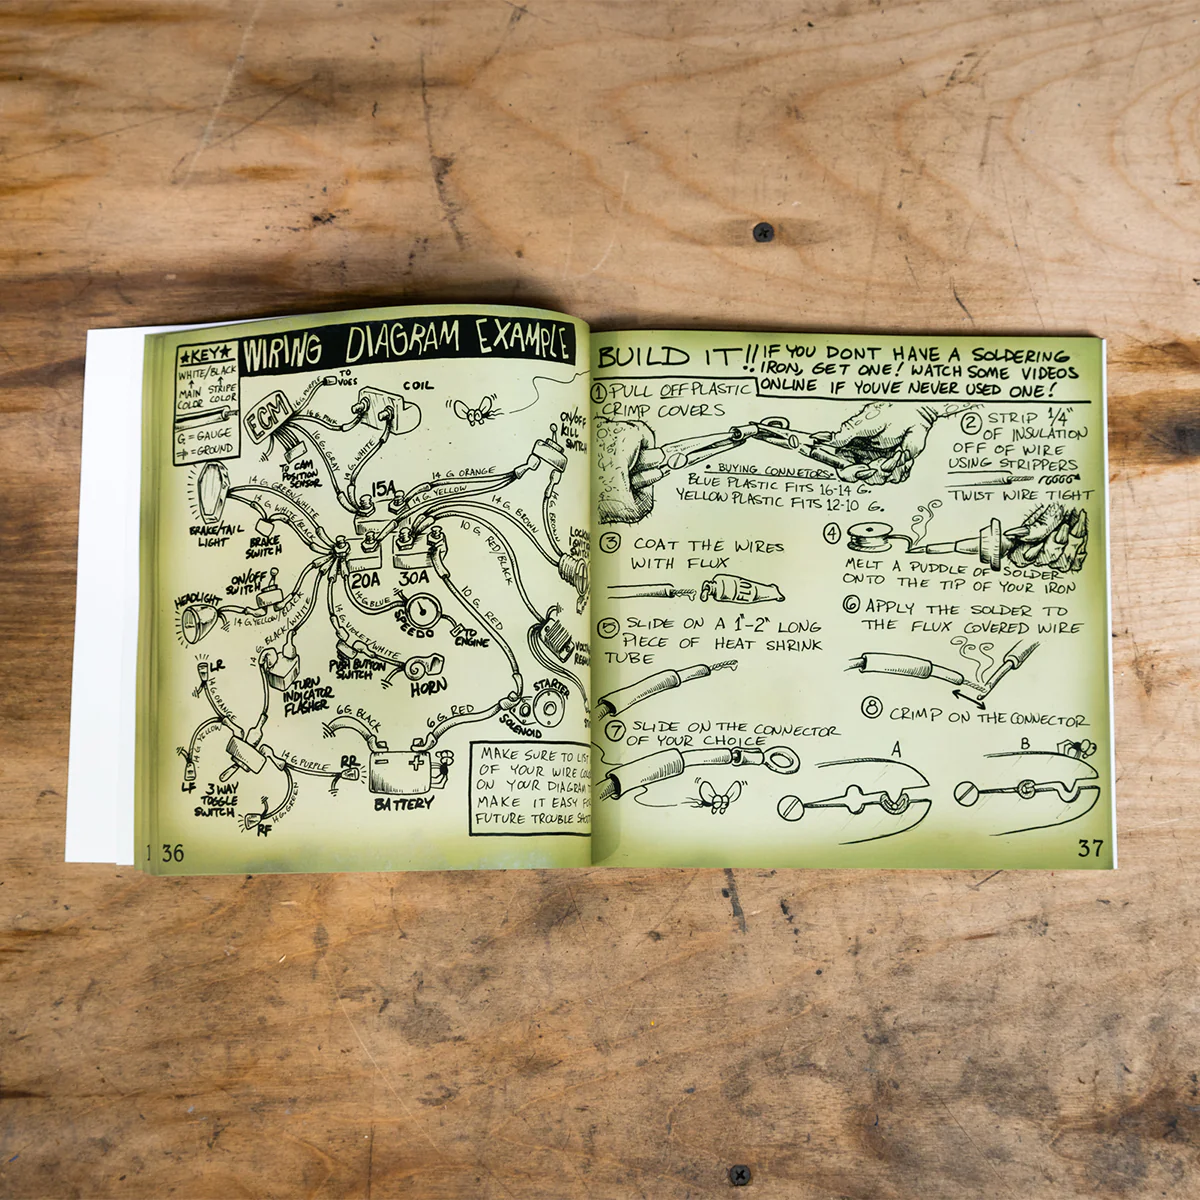 ★KEY★
WHITE/BLACK
MAIN STRIPE
COLOR COLOR
G = GAUGE
= GROUND
WIRING DIAGRAM EXAMPLE
ECM
16 G. PURPLE
TO
VOES
16 G. PINK
COIL
TO CAM
POSITION
SENSOR
16 G. GRAY
16 G. WHITE
ON/OFF
KILL
SWITCH
15A
14 G. ORANGE
14 G. YELLOW
14 G. BROWN
14 G. BROWN
BRAKE/TAIL
LIGHT
14 G. GREEN/WHITE
14 G. WHITE/BLACK
BRAKE
SWITCH
20A
30A
10 G. RED/BLACK
10 G. RED
ON/OFF
SWITCH
HEADLIGHT
14 G. YELLOW/BLACK
14 G. BLACK/WHITE
14 G. BLUE
SPEEDO
TO
ENGINE
14 G. VIOLET/WHITE
PUSH BUTTON
SWITCH
HORN
TURN
INDICATOR
FLASHER
LR
14 G. ORANGE
14 G. YELLOW
LF
3 WAY
TOGGLE
SWITCH
14 G. PURPLE
RR
14 G. GREEN
RF
6 G. BLACK
6 G. RED
BATTERY
- +
STARTER
SOLENOID
MAKE SURE TO LIST
OF YOUR WIRE
ON YOUR DIAGRAM
MAKE IT EASY
FUTURE TROUBLE
1 36
BUILD IT!!
IF YOU DONT HAVE A SOLDERING
IRON, GET ONE! WATCH SOME VIDEOS
ONLINE IF YOUVE NEVER USED ONE!
1 PULL OFF PLASTIC
CRIMP COVERS
• BUYING CONNETORS•
BLUE PLASTIC FITS 16-14 G.
YELLOW PLASTIC FITS 12-10 G.
2 STRIP 1/4"
OF INSULATION
OFF OF WIRE
USING STRIPPERS
TWIST WIRE TIGHT
3 COAT THE WIRES
WITH FLUX
FLUX
4
MELT A PUDDLE OF SOLDER
ONTO THE TIP OF YOUR IRON
5 SLIDE ON A 1"-2" LONG
PIECE OF HEAT SHRINK
TUBE
6 APPLY THE SOLDER TO
THE FLUX COVERED WIRE
7 SLIDE ON THE CONNECTOR
OF YOUR CHOICE
8 CRIMP ON THE CONNECTOR
A
B
37